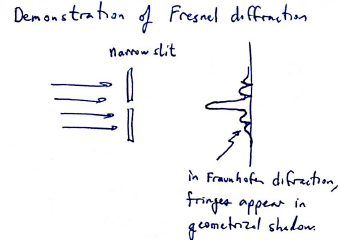 Demonstration of Fresnel diffraction
narrow slit
in Fraunhofer difraction,
fringes appear in
geometrical shadow.